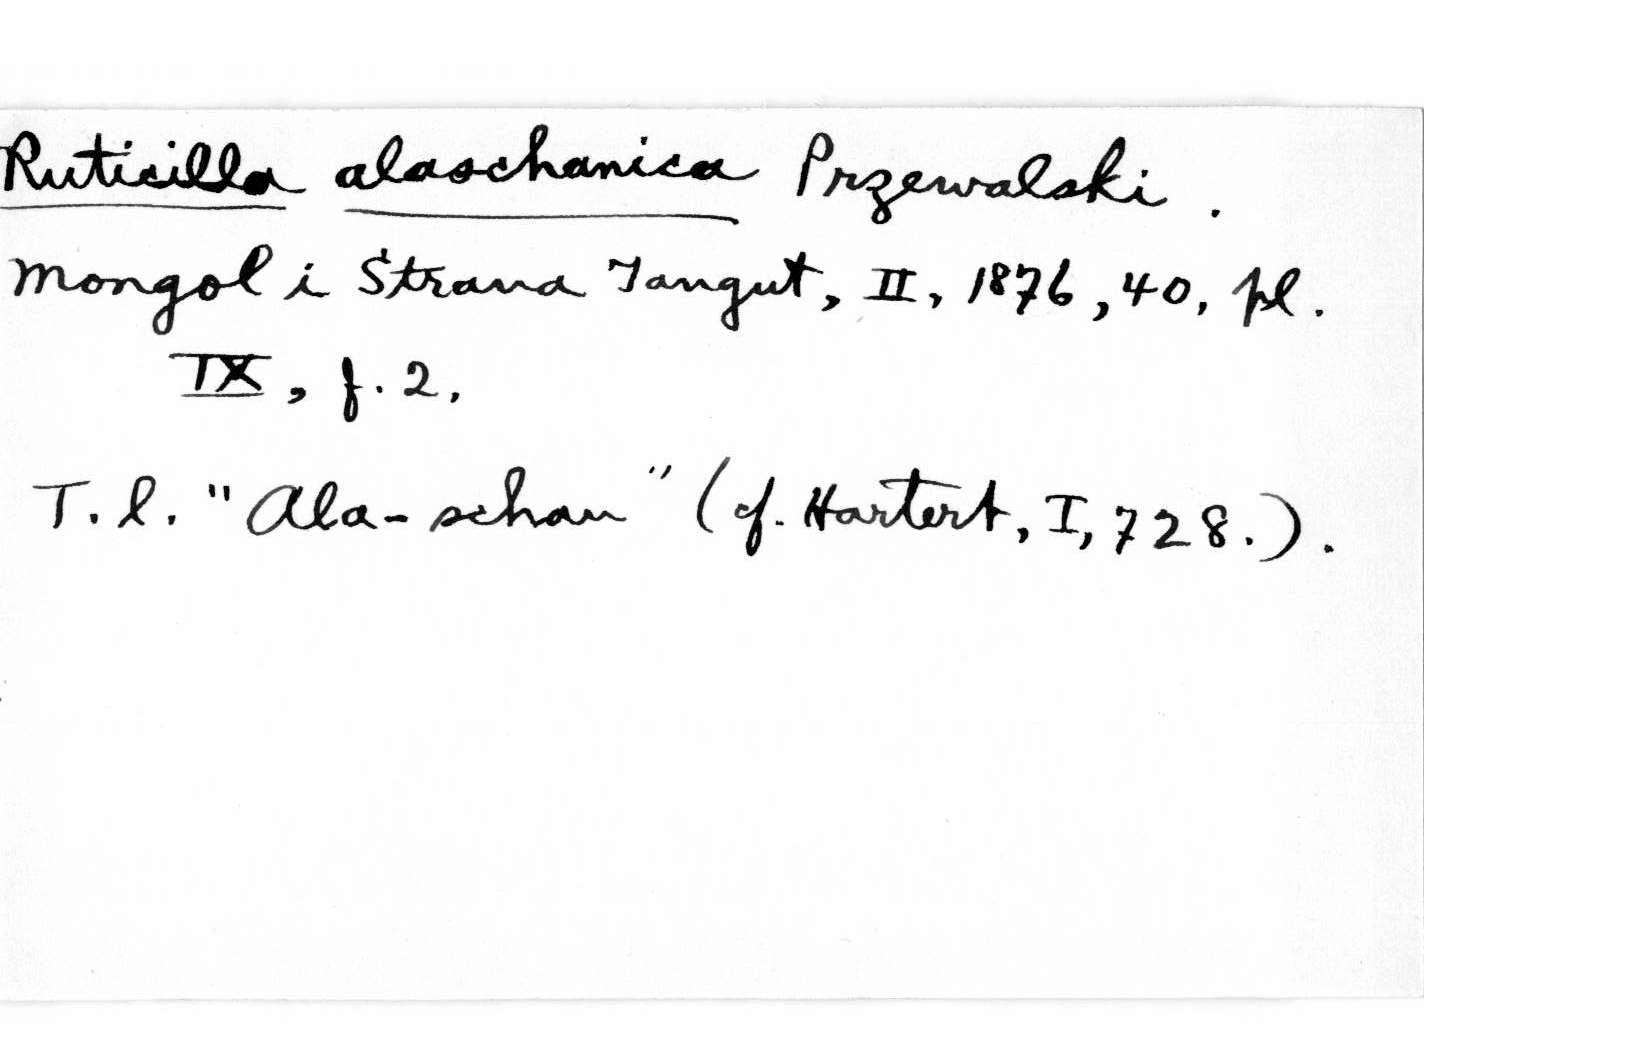 Ruticilla alaschanica Przewalski.
Mongol i Strana Tangut, II, 1876, 40, pl.
IX, f. 2.
T. l. "Ala-schan" (cf. Hartert, I, 728.).